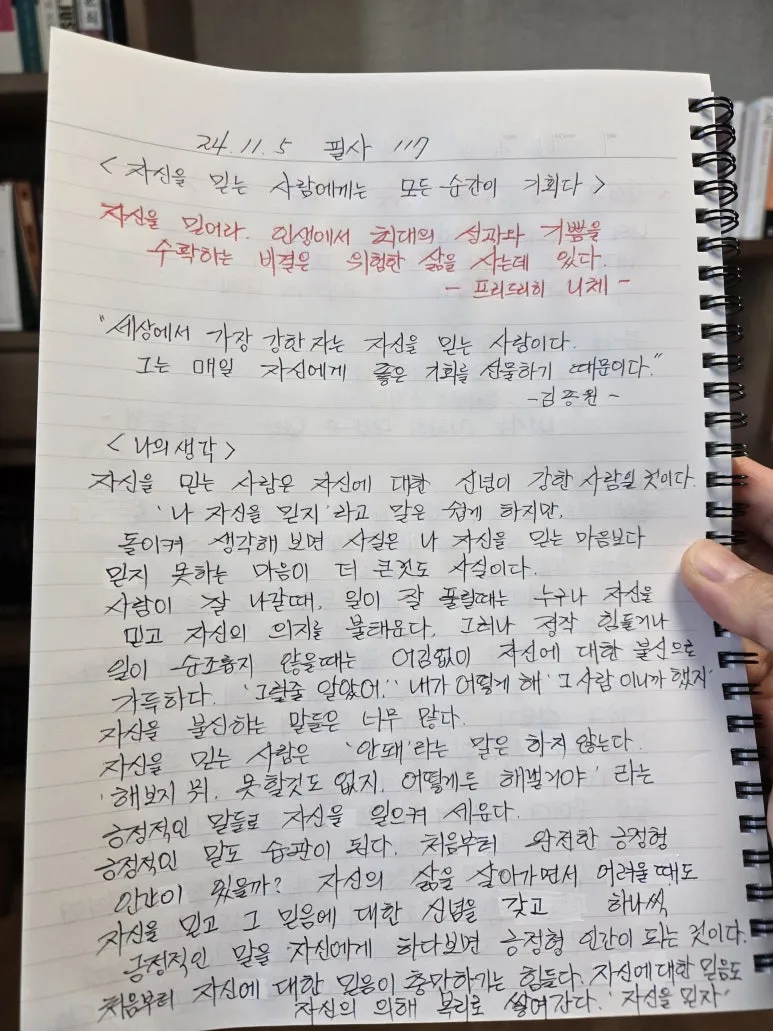 24.11.5 필사 117
< 자신을 믿는 사람에게는 모든 순간이 기회다 >
자신을 믿어라. 인생에서 최대의 성과와 기쁨을
수확하는 비결은 위험한 삶을 사는데 있다.
- 프리드리히 니체 -
"세상에서 가장 강한 자는 자신을 믿는 사람이다.
그는 매일 자신에게 좋은 기회를 선물하기 때문이다."
- 김종원 -
< 나의 생각 >
자신을 믿는 사람은 자신에 대한 신념이 강한 사람일 것이다.
'나 자신을 믿지'라고 말은 쉽게 하지만,
돌이켜 생각해 보면 사실은 나 자신을 믿는 마음보다
믿지 못하는 마음이 더 큰것도 사실이다.
사람이 잘 나갈때, 일이 잘 풀릴때는 누구나 자신을
믿고 자신의 의지를 불태운다. 그러나 정작 힘들거나
일이 순조롭지 않을때는 어김없이 자신에 대한 불신으로
가득하다. '그럴줄 알았어.' '내가 어떻게 해' '그 사람 이니까 했지'
자신을 불신하는 말들은 너무 많다.
자신을 믿는 사람은 '안돼'라는 말은 하지 않는다.
'해보지 뭐. 못할것도 없지. 어떻게든 해볼거야' 라는
긍정적인 말들로 자신을 일으켜 세운다.
긍정적인 말도 습관이 된다. 처음부터 완전한 긍정형
인간이 있을까? 자신의 삶을 살아가면서 어려울때도
자신을 믿고 그 믿음에 대한 신념을 갖고 하나씩
긍정적인 말을 자신에게 하다보면 긍정형 인간이 되는 것이다.
처음부터 자신에 대한 믿음이 충만하기는 힘들다. 자신에 대한 믿음도
자신의 의해 복리로 쌓여간다. '자신을 믿자'